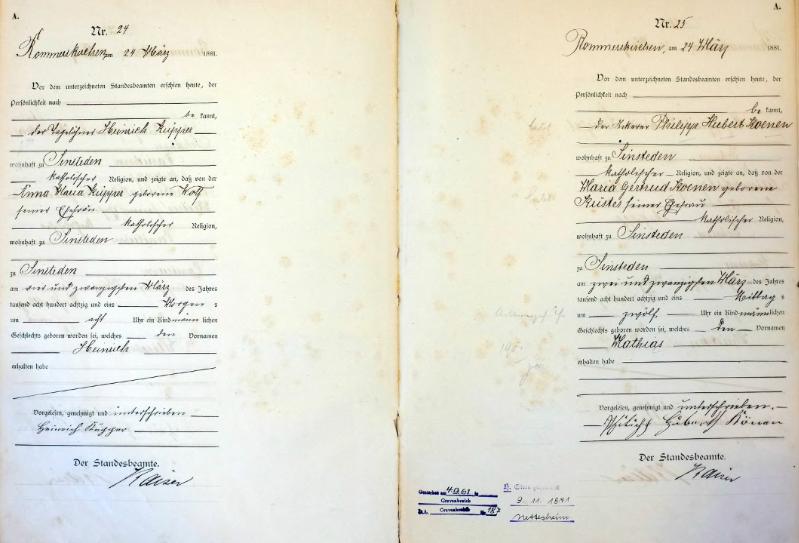 A.
Nr. 24
Rommerskirchen am 24 März 1881.
Vor dem unterzeichneten Standesbeamten erschien heute, der
Persönlichkeit nach
be kannt,
der Tagelöhner Heinrich Küpper
wohnhaft zu Sinsteden
katholischer Religion, und zeigte an, daß von der
Anna Maria Küpper geborene
seiner Ehefrau
katholischer Religion,
wohnhaft zu Sinsteden
zu Sinsteden
am vier und zwanzigsten März des Jahres
tausend acht hundert achtzig und eins Morgens
um acht Uhr ein Kind männlichen
Geschlechts geboren worden sei, welches den Vornamen
Heinrich
erhalten habe
Vorgelesen, genehmigt und unterschrieben
Heinrich Küpper
Der Standesbeamte.
Kaiser
A.
Nr. 25
Rommerskirchen, am 24 März 1881.
Vor dem unterzeichneten Standesbeamten erschien heute, der
Persönlichkeit nach
be kannt,
der Ackerer Philipp Hubert Koenen
wohnhaft zu Sinsteden
katholischer Religion, und zeigte an, daß von der
Maria Gertrud Koenen geborene
seiner Ehefrau
katholischer Religion,
wohnhaft zu Sinsteden
zu Sinsteden
am zwei und zwanzigsten März des Jahres
tausend acht hundert achtzig und eins Mittag
um zwölf Uhr ein Kind männlichen
Geschlechts geboren worden sei, welches den Vornamen
Mathias
erhalten habe
Vorgelesen, genehmigt und unterschrieben.
Hubert Könen
Der Standesbeamte.
Kaiser
Grevenbroich
Grevenbroich
Nr. 187
Nettesheim